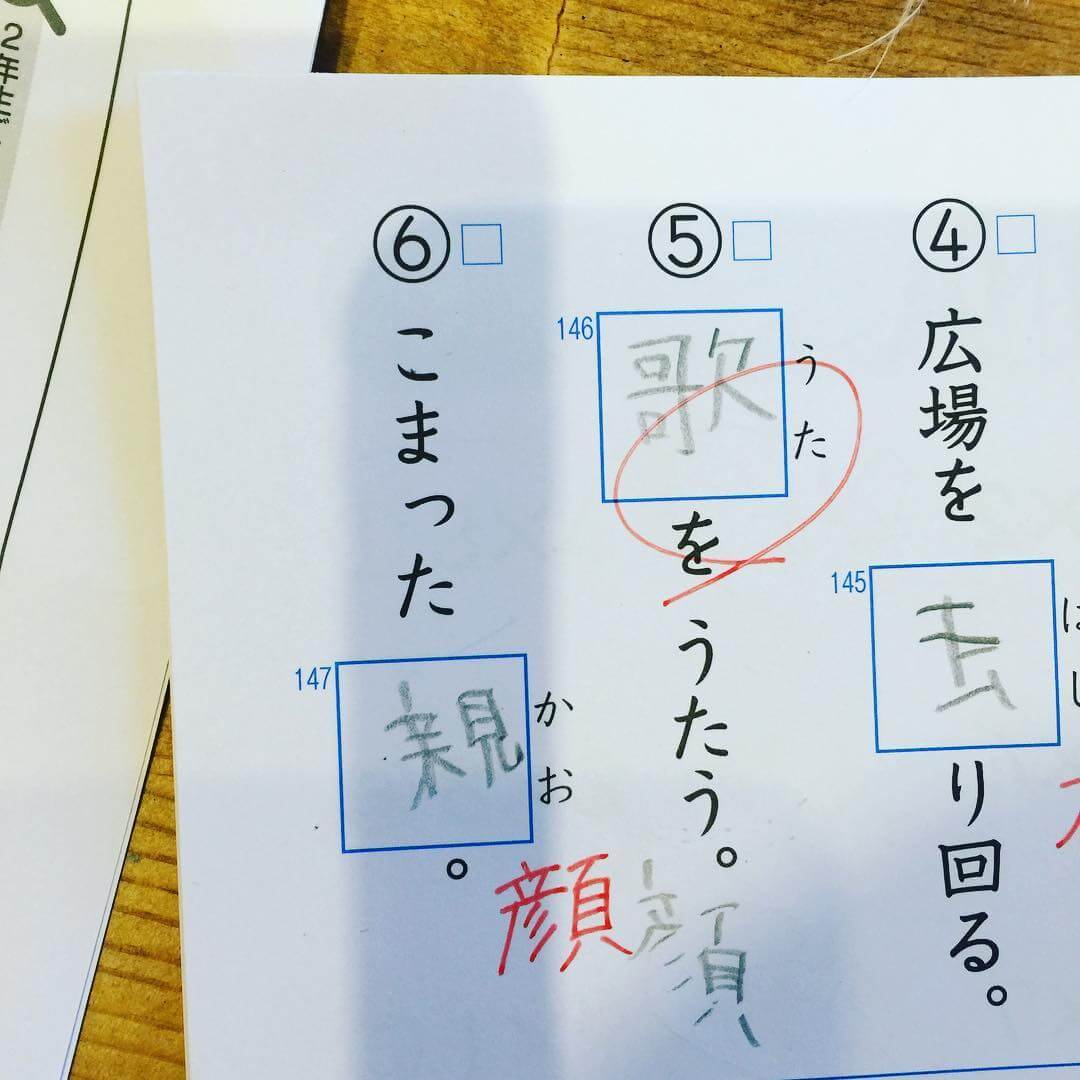 ④ 広場を
145
り回る。
⑤
146
歌
うた
をうたう。
⑥ こまった
147
親
かお
。
顔
顔
2年生で